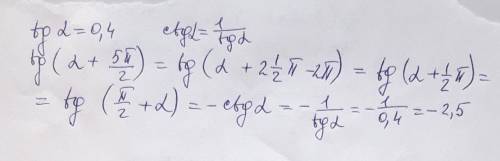 tg α = 0,4 ctgα = 1/tgα
tg (α + 5π/2) = tg (α + 2 1/2 π - 2π) = tg (α + 1/2 π) =
= tg (π/2 + α) = - ctg α = - 1/tgα = - 1/0,4 = - 2,5